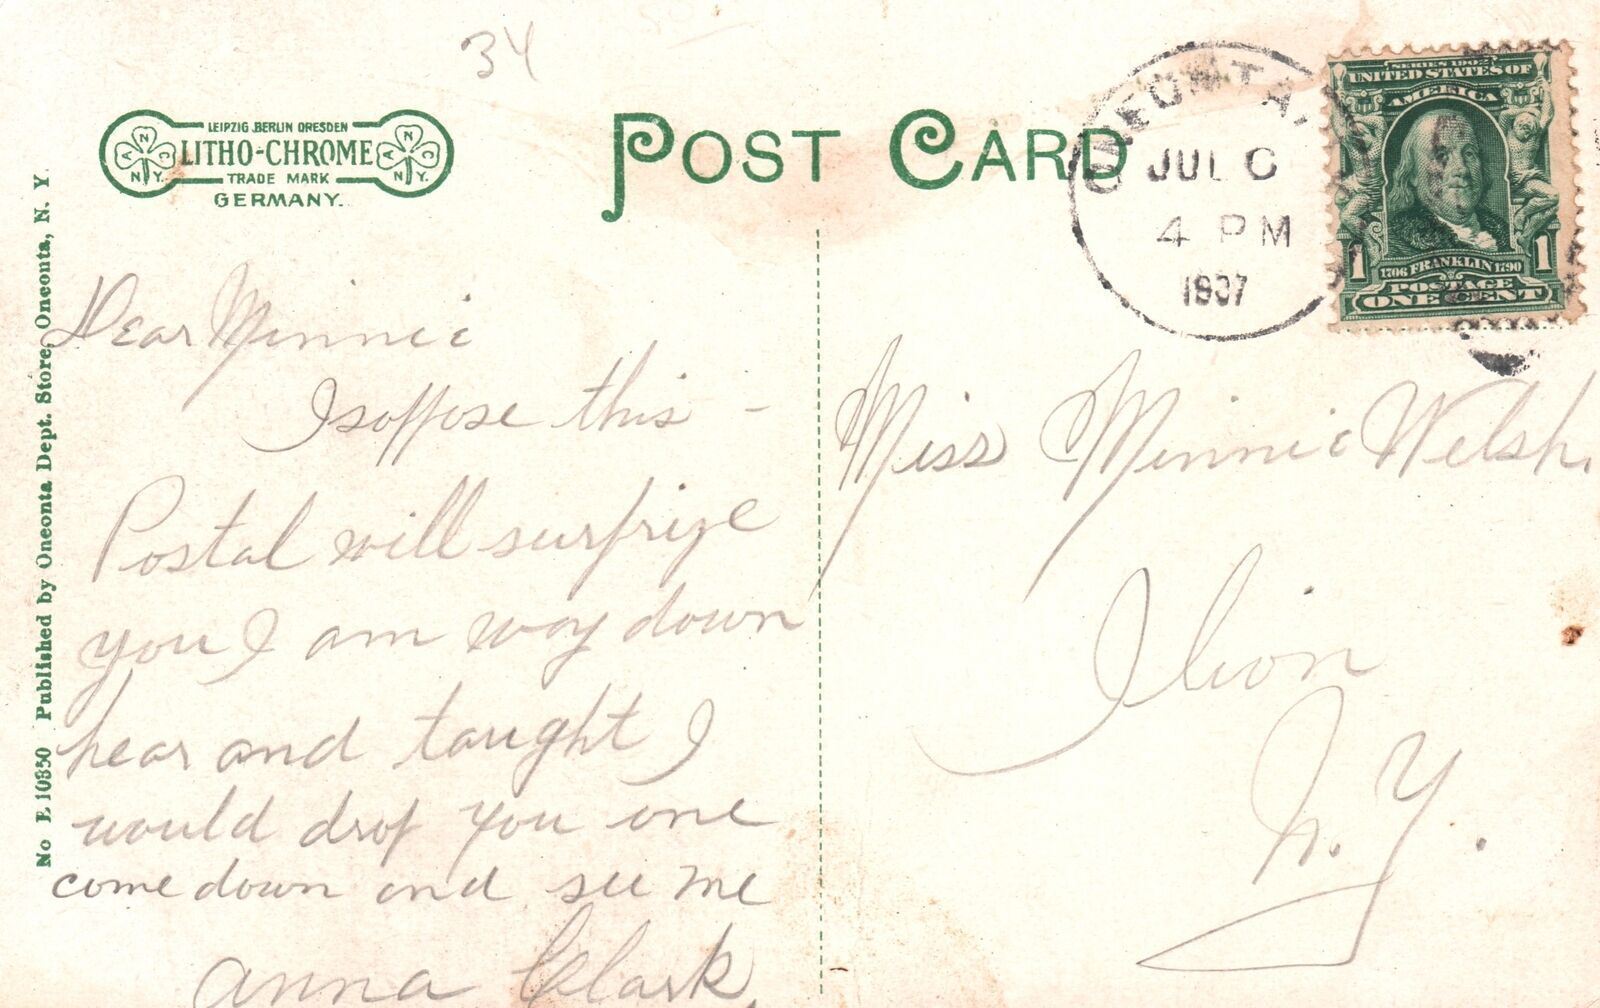 34
LEIPZIG BERLIN DRESDEN
LITHO-CHROME
TRADE MARK
GERMANY.
ANNCNY.
POST CARD
ONEONTA,
JUL 6
4 PM
1907
SERIES 1902
UNITED STATES OF
AMERICA
1 1
1706 FRANKLIN 1790
POSTAGE
ONE CENT
No E 10850 Published by Oneonta Dept. Store, Oneonta, N. Y.
Dear Minnie
I soppose this -
Postal will surprize
you I am way down
hear and taught I
would drop you one
come down and see me
Anna Clark,
Miss Minnie Welsh,
Ilion
N. Y.